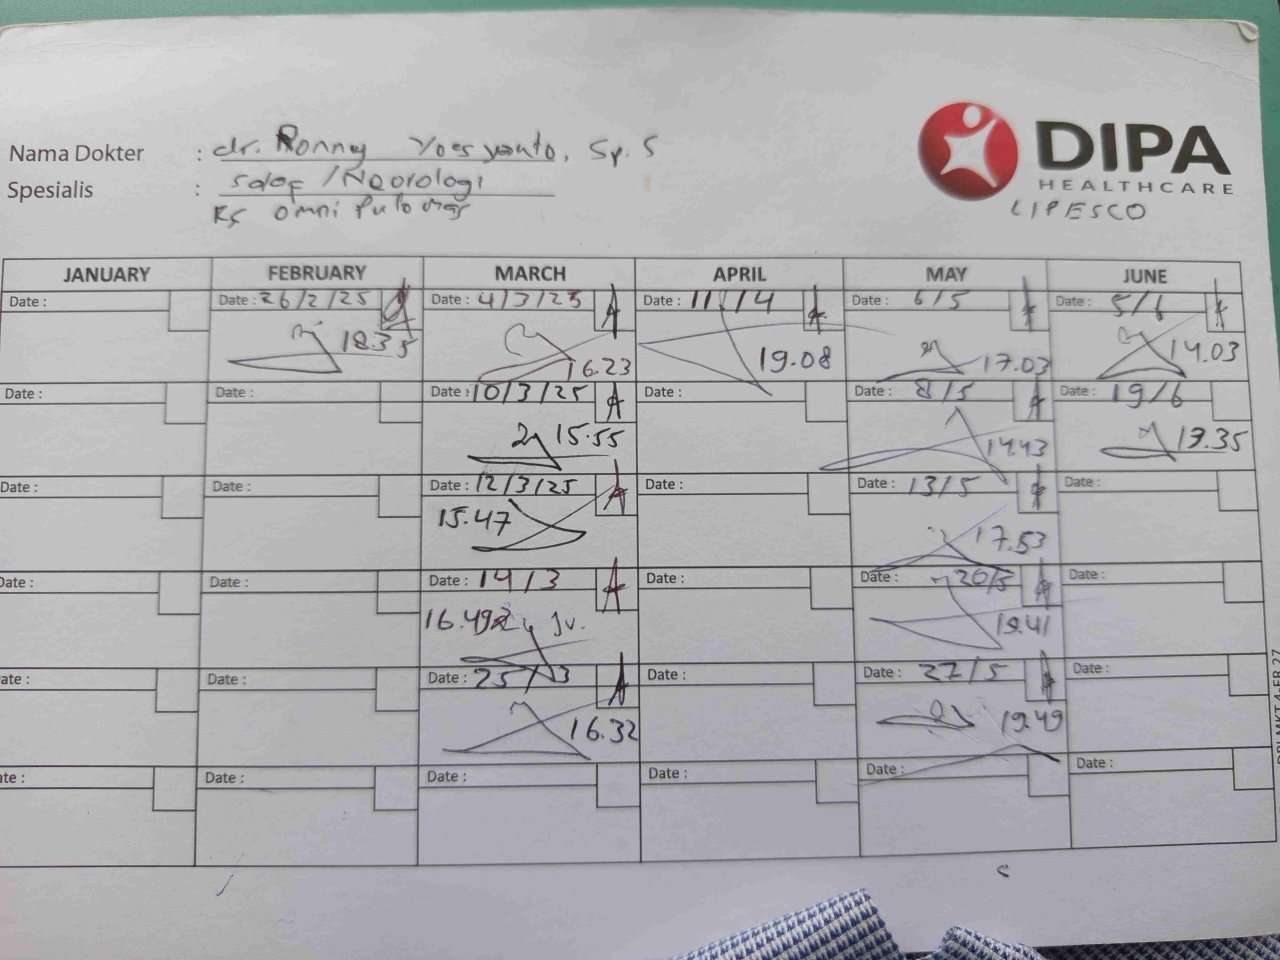 DIPA
HEALTHCARE
LIPESCO
Nama Dokter : dr. Ronny Yoesyanto, Sp. S
Spesialis : saraf / Neorologi
RS Omni Pulomas
JANUARY FEBRUARY MARCH APRIL MAY JUNE
Date : Date : 26/2/25 Date : 4/3/25 Date : 11/4 Date : 6/5 Date : 5/6
18.35 16.23 19.08 17.03 14.03
Date : Date : Date : 10/3/25 Date : Date : 8/5 Date : 19/6
15.55 14.43 19.35
Date : Date : Date : 12/3/25 Date : Date : 13/5 Date :
15.47 17.53
Date : Date : Date : 14/3 Date : Date : 20/5 Date :
16.49 19.41
Date : Date : Date : 25/3 Date : Date : 27/5 Date :
16.32 19.49
Date : Date : Date : Date : Date : Date :